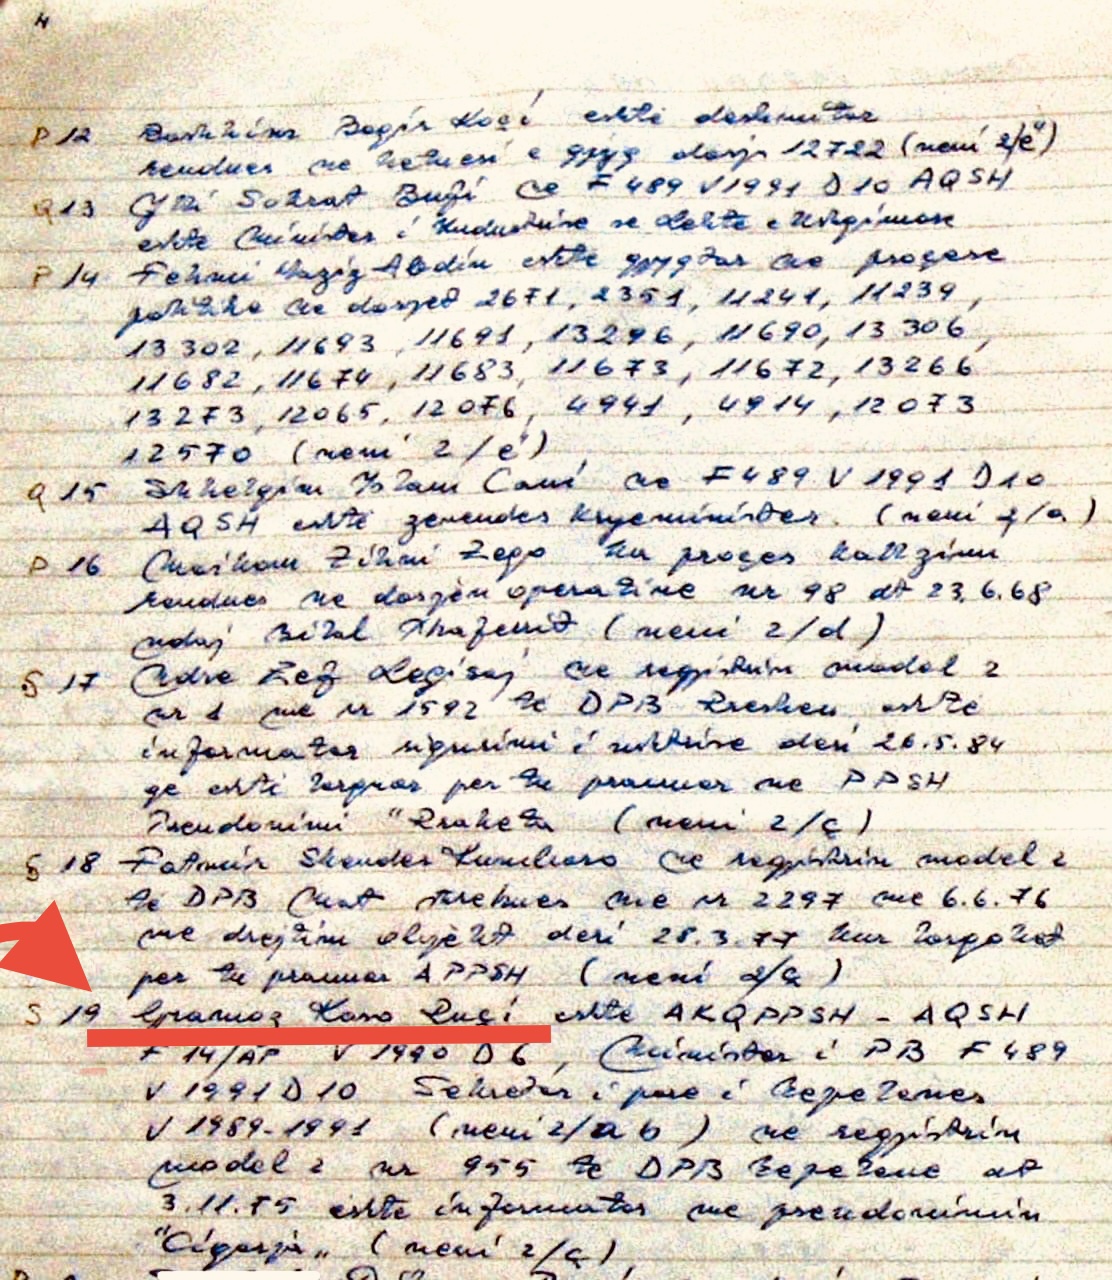 4
P 12 Bashkim Beqir Koçi eshte deshmitar
rendues ne hetuesi e gjyq dosje 12722 (neni 2/e)
Q 13 Ylli Sokrat Bufi ne F 489 V 1991 D 10 AQSH
eshte Minister i Industrise se Lehte e Ushqimore
P 14 Fehmi Abdiu eshte gjyqtar ne procese
politike ne dosjet 2671, 2351, 11241, 11239,
13302, 11693, 11691, 13296, 11690, 13306,
11682, 11674, 11683, 11673, 11672, 13266
13273, 12065, 12076, 4941, 4914, 12073
12570 (neni 2/e)
Q 15 Shkelqim Cani ne F 489 V 1991 D 10
AQSH eshte zevendes kryeminister. (neni 2/a)
P 16 Maksim Zihni Zeqo ka proces kallzimi
rendues ne dosjen operative nr 98 dt 23.6.68
ndaj Bilal Xhaferrit (neni 2/d)
S 17 Ndre Zef Legisaj ne regjistrin model 2
nr 1 me nr 1592 te DPB Rreshen eshte
informator sigurimi i ushtrise deri 26.5.84
qe eshte larguar per tu pranuar ne PPSH
Pseudonimi "Raketa (neni 2/ç)
S 18 Fatmir Skender Kumbaro ne regjistrin model 2
te DPB Mat me nr 2297 me 6.6.76
me drejtim objekt deri 28.3.77 kur largohet
per tu pranuar A PPSH (neni 2/ç)
S 19 Gramoz Ruçi eshte AKQPPSH - AQSH
F 14/AP V 1990 D 6, Minister i PB F 489
V 1991 D 10 Sekretar i pare i Tepelenes
V 1989-1991 (neni 2/a b) ne regjistrin
model 2 nr 955 te DPB Tepelene dt
3.11.75 eshte informator me pseudonimin
"Cigarja" (neni 2/ç)